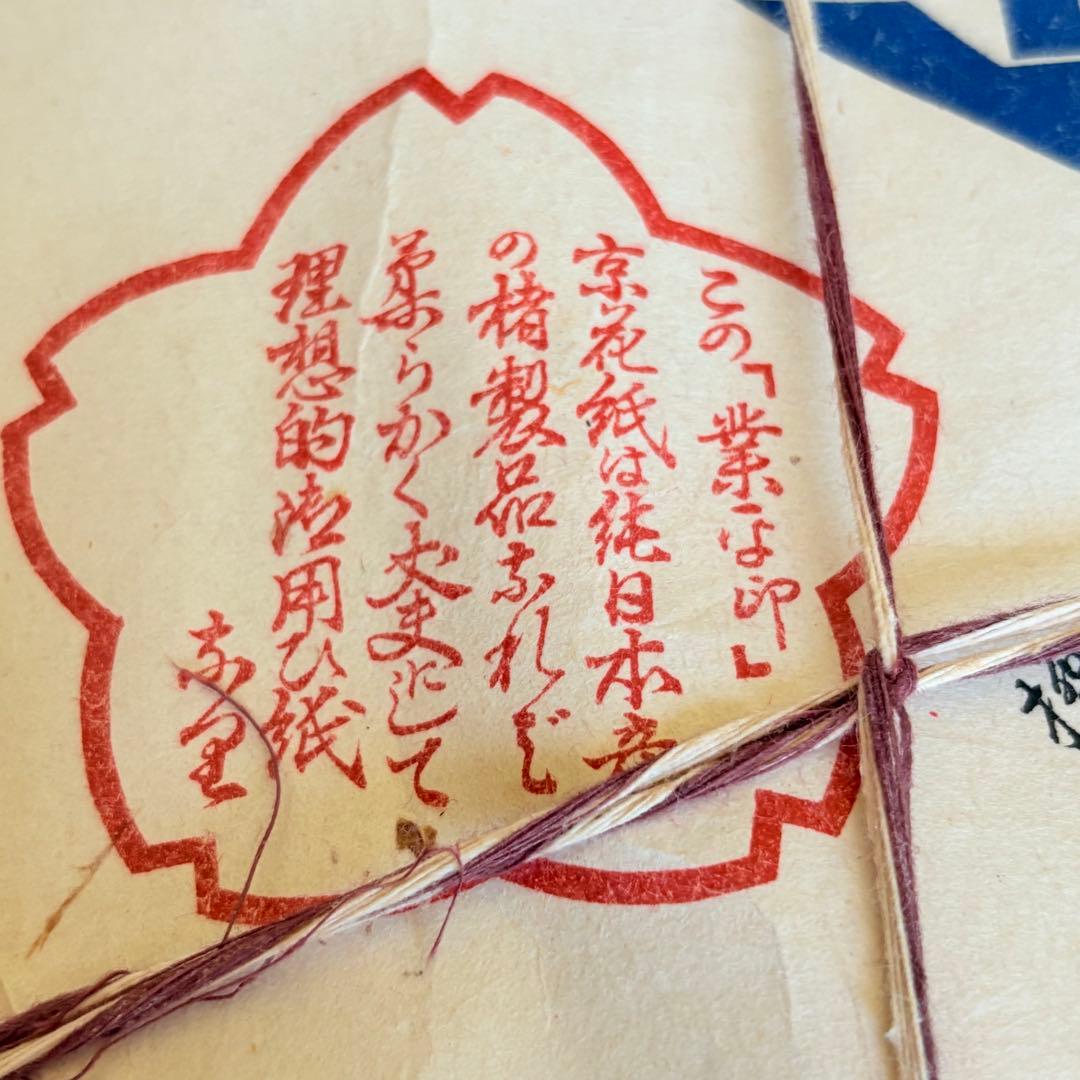 この「業平印」
京花紙は純日本産
の楮製品なれば
柔らかく丈夫にして
理想的御用ひ紙
な里